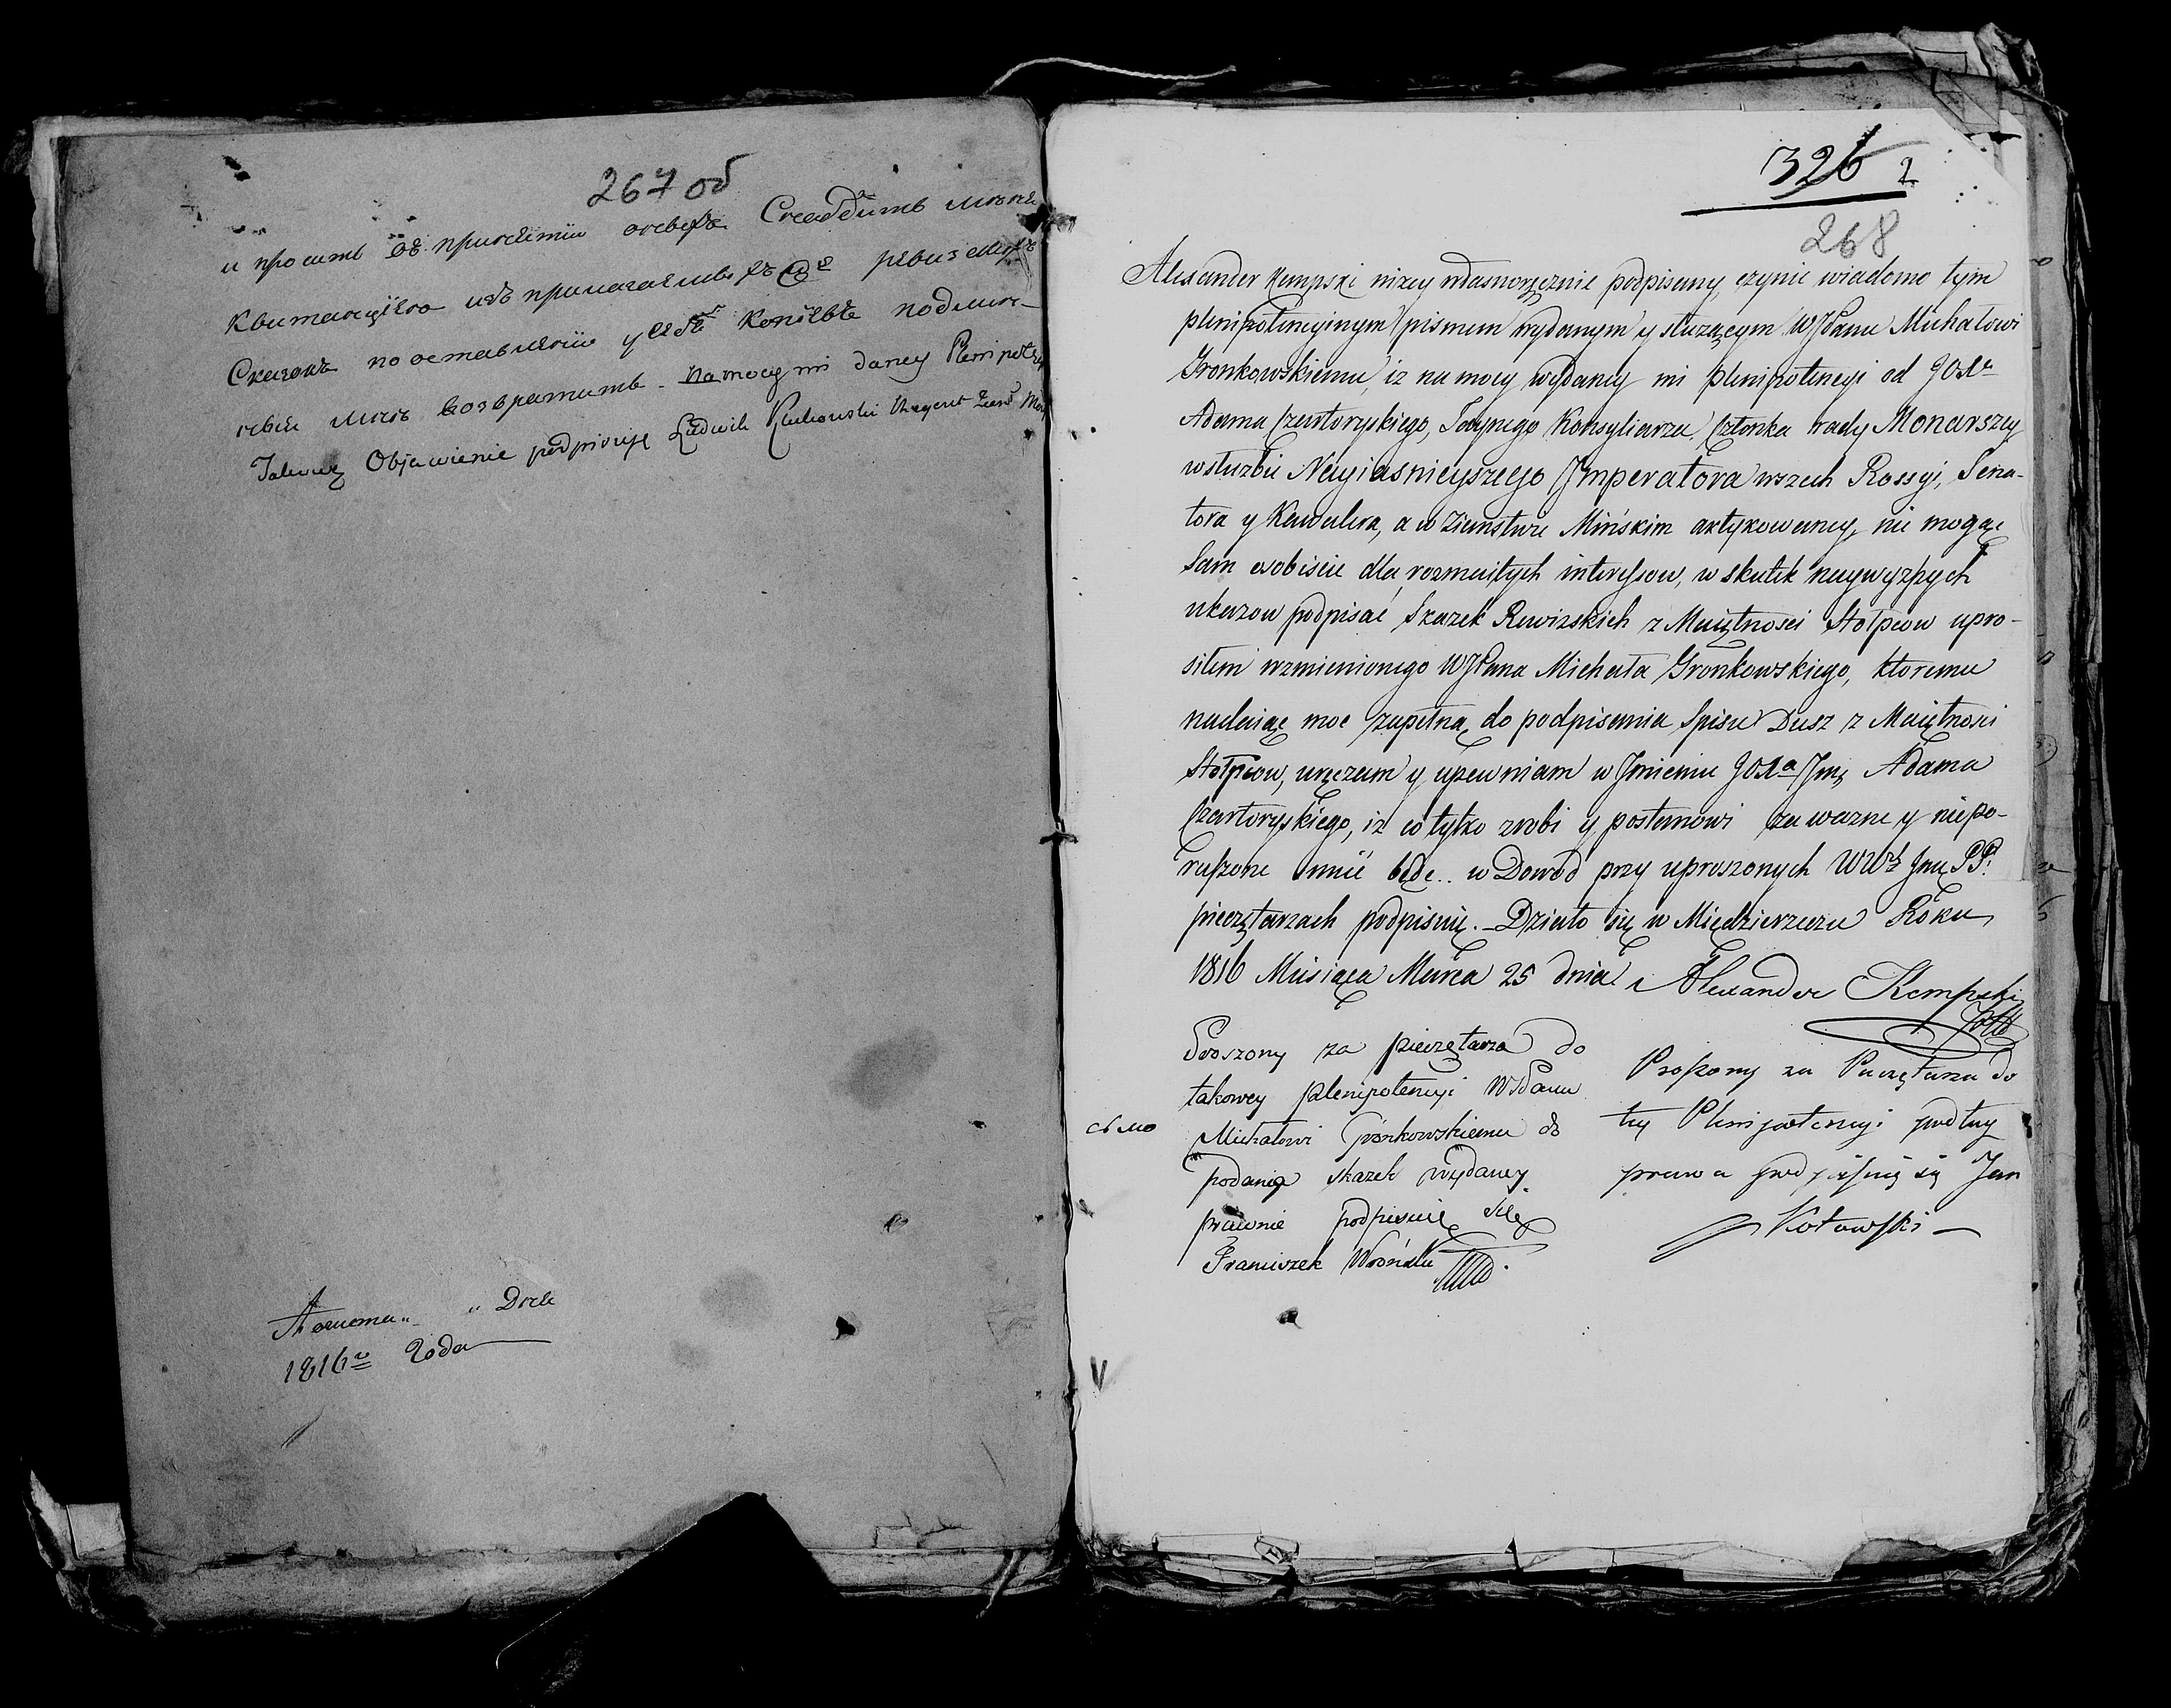 267 об
и просить въ принятiи оныхъ Снабдить меня
Квитанцiею изъ прилагаемыхъ ревизскихъ
Сказокъ по оставленiи у себя копiевъ
мнѣ возвратить - na mocy mi daney Plenipotencyi
Takowe Objawienie podpisuję Ludwik Regent
Августа „ „ Дня
1816го Года
326 2
268
Alexander Kempski niżey własnoręcznie podpisany, czynię wiadomo tym
plenipotencyinym pismem wydanym y służącym WJPanu Michałowi
Gronkowskiemu, iż na mocy wydaney mi plenipotencyi od JOXcia
Adama Czartoryskiego, Taynego Konsyliarza, Członka rady Monarszey
w służbie Nayiaśnieyszego Jmperatora wszech Rossyi, Sena-
tora y Kawalera, a w Ziemstwie Mińskim aktykowaney, nie mogąc
Sam osobiście dla rozmaitych interessow, w skutek naywyższych
ukazow podpisać Skazek Rewizskich z Maiętności Stołpcow upro-
siłem wzmienionego WJPana Michała Gronkowskiego, ktoremu
nadaiąc moc zupełną do podpisania Spisu Dusz z Maiętności
Stołpcow, uręczam y upewniam w Jmieniu JOXa Jmci Adama
Czartoryskiego, iż co tylko zrobi y postanowi za ważne y niepo-
ruszone mieć będę.. w Dowod przy uproszonych WWch Jmć PP.
pieczętarzach podpisuię. - Działo się w Międzierzeczu Roku
1816 Miesiąca Marca 25 dnia Alexander Kempski
Proszony za pieczętarza do
takowey plenipotencyi WJPanu
Michałowi Gronkowskiemu do
podania skazek wydaney
prawnie podpisuię się
Franciszek
Proszony za Pieczętarza do
tey Plenipotencyi podług
prawa podpisuię się Jan
Kotowski